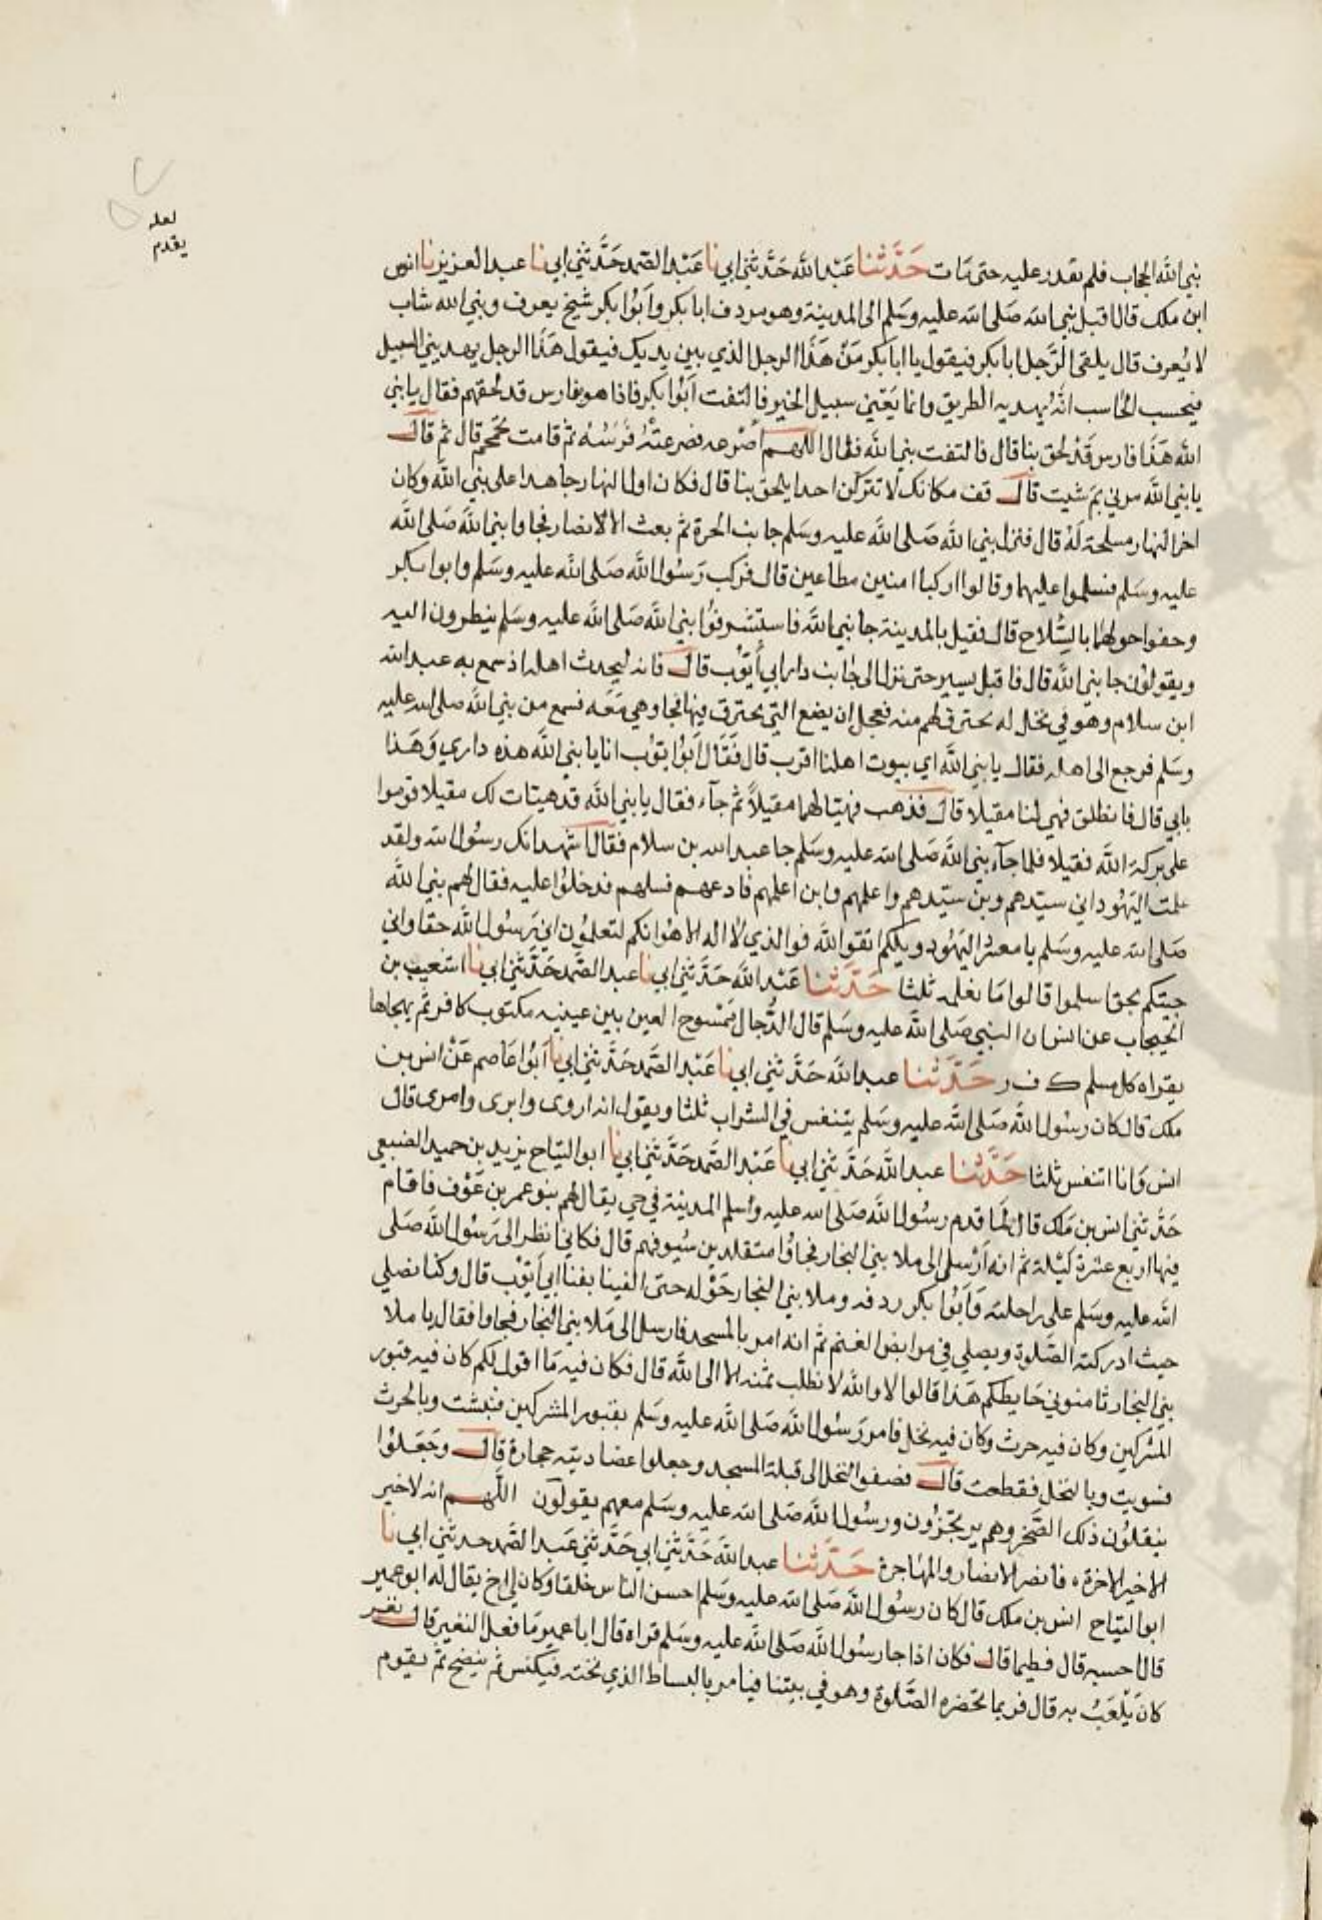 لعله
يقدم
نبي الله الحجاب فلم يقدر عليه حتى مات حَدَّثنا عَبْد الله حَدَّثني ابي نا عَبْد الصّمد حَدَّثني ابي نا عبد العزيز نا انس
ابن ملك قال اقبل نبي الله صَلى الله عليه وسَلم الى المدينة وهو مردف ابا بكر وابُوا بكر شيخ يعرف ونبي الله شاب
لا يُعرف قال يلقى الرَّجل ابا بكر فيقول يا ابا بكر مَنْ هَذا الرجل الذي بين يديك فيقول هَذا الرجل يهديني السبيل
فيحسب الحاسب انه يهديه الطريق وانما يَعْني سبيل الخير فالتفت ابُوا بكر فاذا هو بفارس قد لحقهم فقال يا نبي
الله هَذا فارس قَدْ لحق بنا قال فالتفت نبي الله فقال اللهم اصْرعه فصرعتْهُ فرسُهُ ثم قامت تحمحم قال ثم قال
يا نبي الله مرني بمَ شيت قال قف مكانك لا تتركن احدا يلحق بنا قال فكان اول النهار جاهدا على نبي الله وكان
اخر النهار مسلحة لهُ قال فنزل نبي الله صَلى الله عليه وسَلم جانب الحرة ثم بعث الى الانصار فجاوا نبي الله صَلى الله
عليه وسَلم فسلموا عليهما وقالوا اركبا امنين مطاعين قال فركب رَسُول الله صَلى الله عليه وسَلم وابوا بكر
وحفوا حولهما بالسّلاح قال فقيل بالمدينة جا نبي الله فاستشرفُوا نبي الله صَلى الله عليه وسَلم ينظرون اليه
ويقولوُن جا نبي الله قال فاقبل يسير حتى نزل الى جانب دار ابي أيّوب قال فانه ليحدث اهلها اذ سمع به عبد الله
ابن سلام وهو في نخل له يحترف لهم منه فعجل ان يضع التي يحترف فيها فجا وهي مَعَه فسمع من نبي الله صلى الله عليه
وسَلم فرجع الى اهله فقال يا نبي الله اي بيوت اهلنا اقرب قال فَقال ابُوا يوب انا يا نبي الله هذه داري وَهَذا
بابي قال فانطلق فهي لنا مقيلا قال فذهب فهيّا لهما مقيلاً ثم جآء فقال يا نبي الله قد هيات لك مقيلا قوموا
على بركة الله فقيلا فلما جآء نبي الله صَلى الله عليه وسَلم جا عبد الله بن سلام فقال اشهد انك رسُول الله ولقد
علمت اليَهُود اني سيّدهم وبن سيّدهم واعلمهم وابن اعلمهم فادعهم فسلهم فدخلوا عليه فقال لهم نبي الله
صَلى الله عليه وسَلم يا معشر اليَهُود ويلكم اتقوا الله فوالذي لا اله الا هُو انكم لتعلموُن اني رسُول الله حقا واني
جيتكم بحق اسلموا قالوا مَا نعلمه ثلثا حَدَّثنا عَبْد الله حَدَّثني ابي نا عبد الصَّمد حَدَّثني ابي نا شعيب بن
الحبحاب عن انس ان النبي صَلى الله عليه وسَلم قال الدَّجال مَمْسوح العين بين عينيه مكتوب كافر ثم يهجاها
يقراه كل مسلم ك ف ر حَدَّثنا عبد الله حَدَّثني ابي نا عَبْد الصَّمد حَدَّثني ابي نا ابُوا عَاصم عَنْ انس بن
ملك قال كان رسُول الله صَلى الله عليه وسَلم يتنفس في الشراب ثلثا ويقول انه اروى وابرى وامرى قال
انس وَانا اتنفس ثلثا حَدَّثنا عبد الله حَدَّثني ابي نا عَبْد الصَّمد حَدَّثني ابي نا ابو التيّاح يزيد بن حميد الضبعي
حَدَّثني انس بن مَلك قال لمَّا قدم رسُول الله صَلى الله عليه وسلم المدينة في حي يقال لهم بنو عمر بن عَوْف فاقام
فيها اربع عشرة ليْلة ثم انه ارْسل الى ملا بني النجار فجاوُا متقلدين سُيوفهم قال فكاني انظر الى رَسُول الله صَلى
الله عليه وسَلم على راحلته وَابُوا بكر ردفه وملا بني النجار حَوْله حتى القينا بفنا ابي أيّوْب قال وكنا نصلي
حيث ادركته الصّلوة ويصلي في مرابض الغنم ثم انه امر بالمسجد فارسل الى مَلا بني النجار فجاوا فقال يا ملا
بني النجار ثامنوني حَايطكم هَذا قالوا لا والله لا نطلب ثمنه الا الى الله قال فكان فيه مَا اقول لكم كان فيه قبور
المشركين وكان فيه حرث وكان فيه نخل فامر رَسُول الله صَلى الله عليه وسَلم بقبور المشركين فنبشت وبالحرث
فسويت وبالنخل فقطعت قال فصفوا النخل الى قبلة المسجد وجعلوا عضاديه حجارة قال وجَعَلوُا
ينقلوُن ذلك الصَّخر وهم يرتجزُون ورسُول الله صَلى الله عليه وسَلم معهم يقولوُن اللَّهم انه لا خير
الا خير الاخرة فانصر الانصار والمهاجرة حَدَّثنا عبد الله حَدَّثني ابي حَدَّثني عَبد الصَّمد حدثني ابي نا
ابو التيّاح انس بن ملك قال كان رسُول الله صَلى الله عليه وسَلم احسن الناس خلقا وكان لي اخ يقال له ابو عمير
قال احسبه قال فطيما قال فكان اذا جا رسُول الله صَلى الله عليه وسَلم فراه قال ابا عمير مَا فعل النغير قال نغر
كان يَلْعَبُ به قال فربما تحضره الصَّلوة وهو في بيتنا فيامر بالبساط الذي تحته فيكنس ثم ينضح ثم يقوم